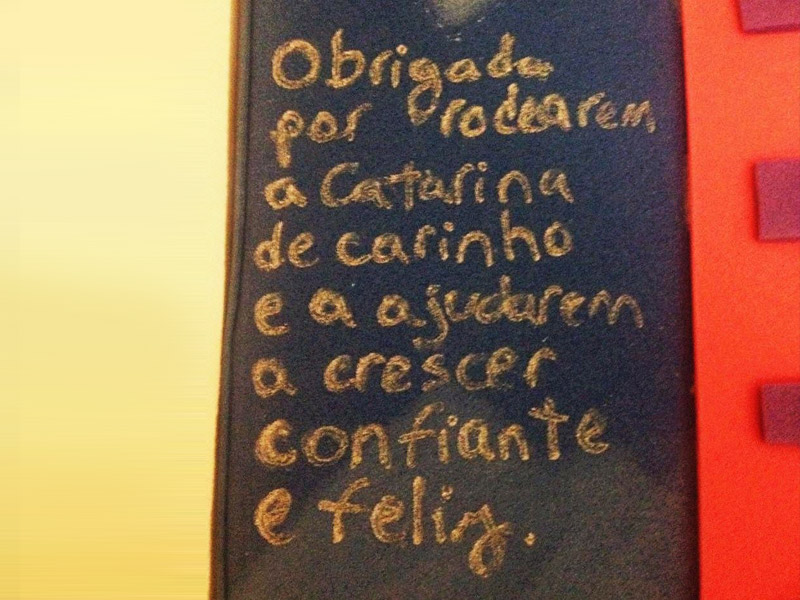 Obrigada
por rodearem
a Catarina
de carinho
e a ajudarem
a crescer
confiante
e feliz.